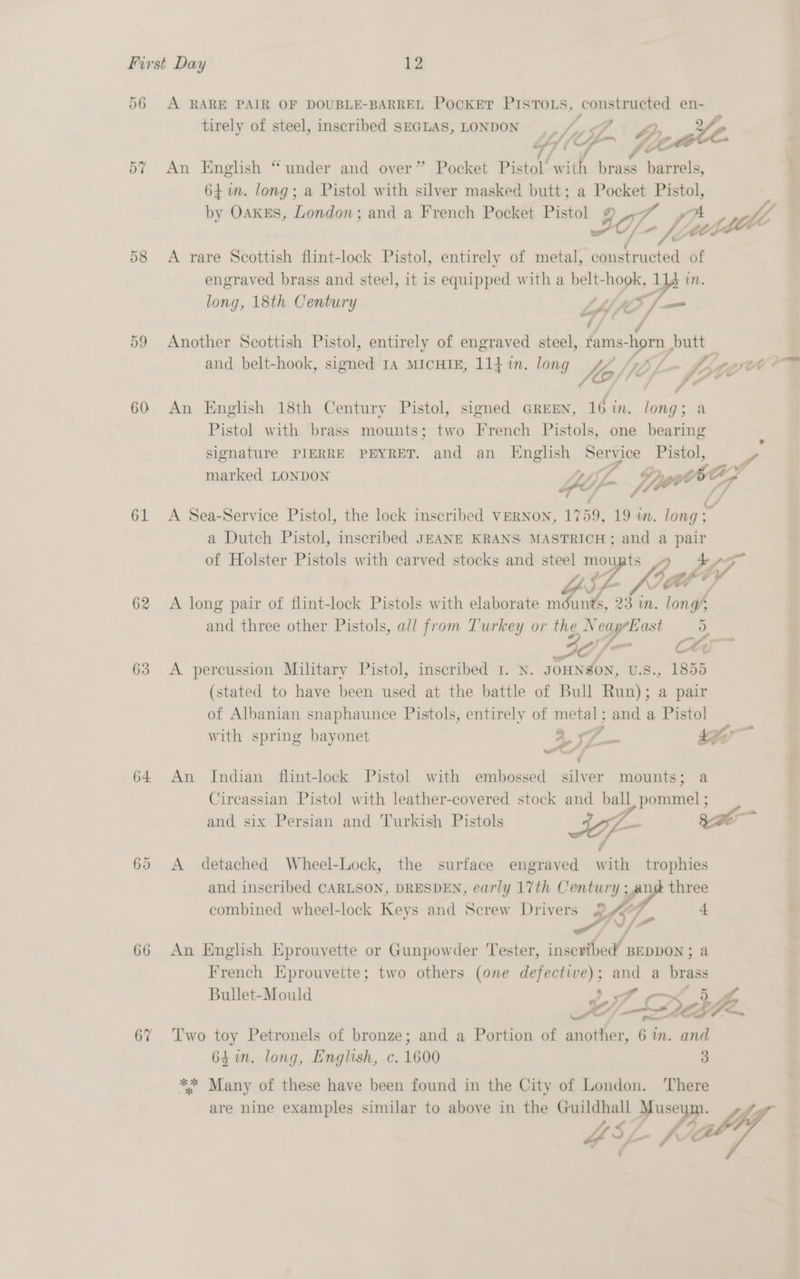 First Day 12
56 A RARE PAIR OF DOUBLE-BARREL POCKET PISTOLS, constructed en-
tirely of steel, inscribed SEGLAS, LONDON
57 An English “under and over” Pocket Pistol with brass barrels,
6½ in. long; a Pistol with silver masked butt; a Pocket Pistol,
by OAKES, London; and a French Pocket Pistol
58 A rare Scottish flint-lock Pistol, entirely of metal, constructed of
engraved brass and steel, it is equipped with a belt-hook, in.
long, 18th Century
59 Another Scottish Pistol, entirely of engraved steel, rams-horn butt
and belt-hook, signed IA MICHIE, 11½ in. long
60 An English 18th Century Pistol, signed GREEN, 16 in. long; a
Pistol with brass mounts; two French Pistols, one bearing
signature PIERRE PEYRET. and an English Service Pistol,
marked LONDON
61 A Sea-Service Pistol, the lock inscribed VERNON, 1759, 19 in. long;
a Dutch Pistol, inscribed JEANE KRANS MASTRICH; and a pair
of Holster Pistols with carved stocks and steel mounts
62 A long pair of flint-lock Pistols with elaborate mounts, 23 in. long;
and three other Pistols, all from Turkey or the Near East 5
63 A percussion Military Pistol, inscribed I. N. JOHNSON, U.S., 1855
(stated to have been used at the battle of Bull Run); a pair
of Albanian snaphaunce Pistols, entirely of metal; and a Pistol
with spring bayonet
64 An Indian flint-lock Pistol with embossed silver mounts; a
Circassian Pistol with leather-covered stock and ball pommel;
and six Persian and Turkish Pistols
65 A detached Wheel-Lock, the surface engraved with trophies
and inscribed CARLSON, DRESDEN, early 17th Century; and three
combined wheel-lock Keys and Screw Drivers 4
66 An English Eprouvette or Gunpowder Tester, inscribed BEDDON; a
French Eprouvette; two others (one defective); and a brass
Bullet-Mould 5
67 Two toy Petronels of bronze; and a Portion of another, 6 in. and
6½ in. long, English, c. 1600 3
*** Many of these have been found in the City of London. There
are nine examples similar to above in the Guildhall Museum.